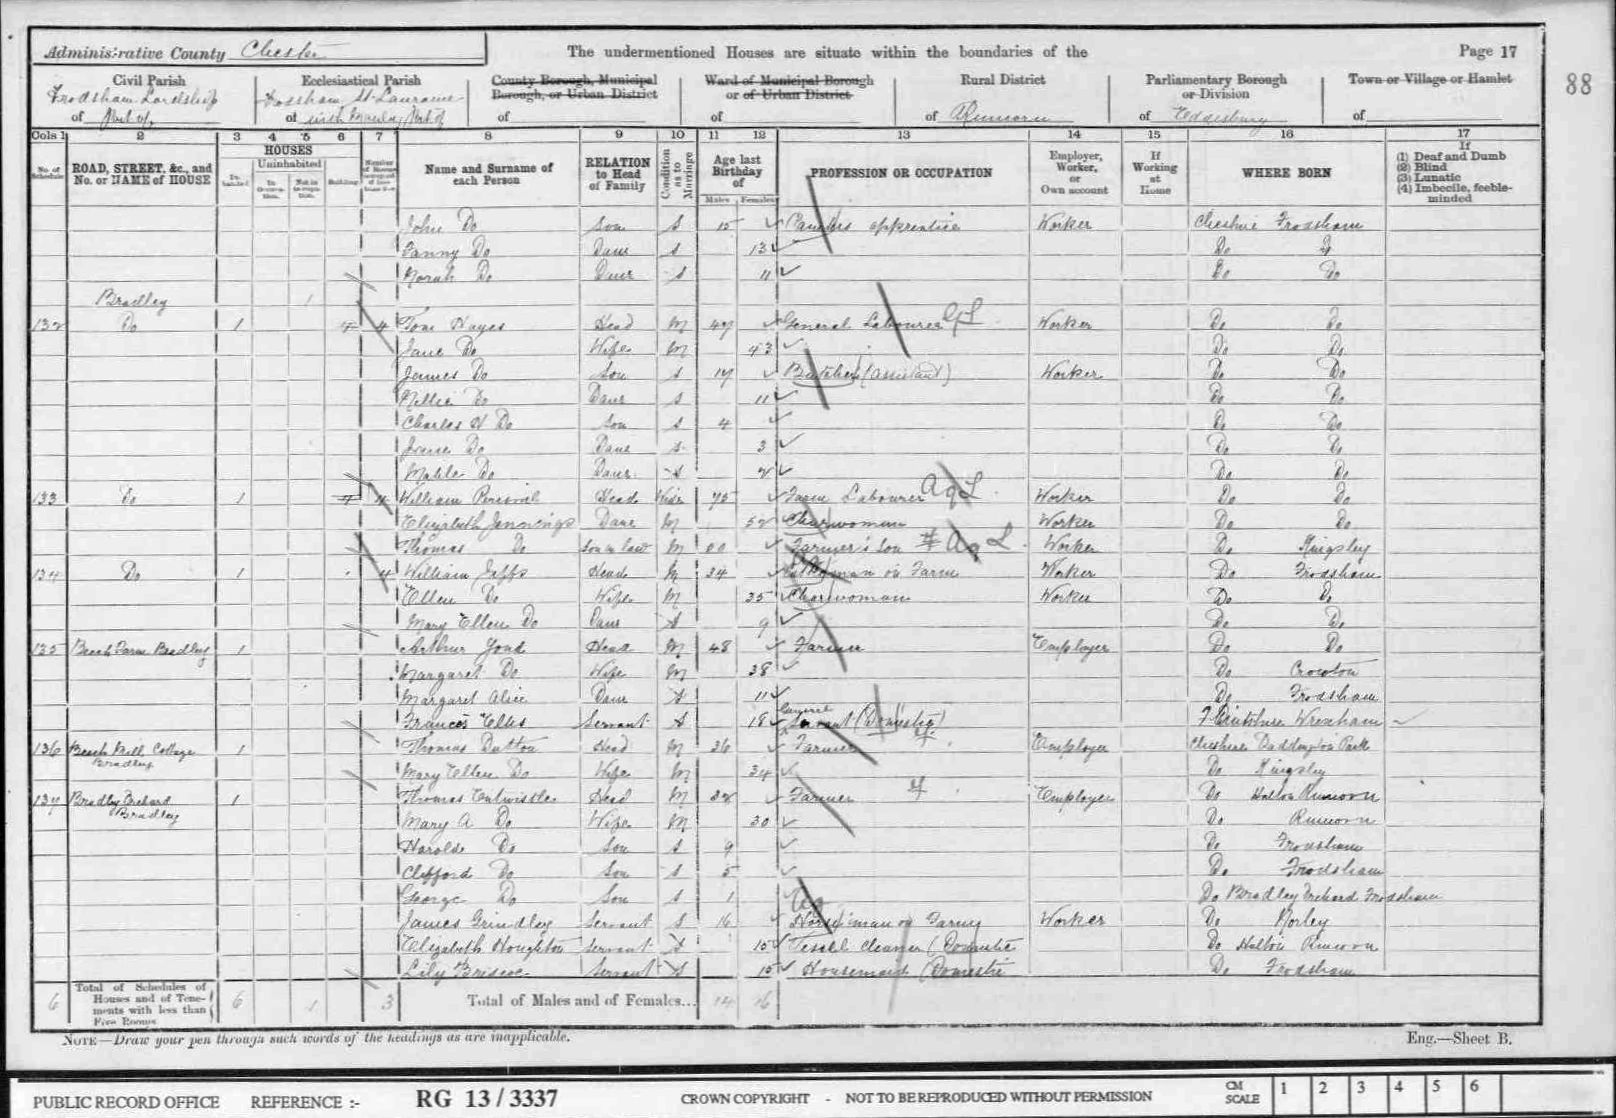 Administrative County Chester The undermentioned Houses are situate within the boundaries of the Page 17
88
Civil Parish Ecclesiastical Parish County Borough, Municipal Borough, or Urban District Ward of Municipal Borough or of Urban District Rural District Parliamentary Borough or Division Town or Village or Hamlet
Frodsham Lordship Frodsham St Laurence
of Part of of with Part of of of of Runcorn of Eddisbury of
Cols 1 2 3 4 5 6 7 8 9 10 11 12 13 14 15 16 17
No. of Schedule ROAD, STREET, &c., and No. or NAME of HOUSE HOUSES Inhabited Uninhabited In Occupation. Not in Occupation. Building Name and Surname of each Person RELATION to Head of Family Condition as to Marriage Age last Birthday of Males Females PROFESSION OR OCCUPATION Employer, Worker, or Own account If Working at Home WHERE BORN If (1) Deaf and Dumb (2) Blind (3) Lunatic (4) Imbecile, feeble-minded
John Do Son S 15 apprentice Worker Cheshire Frodsham
Fanny Do Daur S 13 Do Do
Norah Do Daur S 11 Do Do
Bradley 1
132 Do 1 4 4 Tom Hayes Head M 47 General Labourer Worker Do Do
Jane Do Wife M 43 Do Do
James Do Son S 17 Butcher (Assistant) Worker Do Do
Nellie Do Daur S 11 Do Do
Charles H Do Son S 4 Do Do
Do Daur S 3 Do Do
Do Daur S 2 Do Do
133 Do 1 4 4 William Percival Head Widr 75 Farm Labourer Ag L Worker Do Do
Elizabeth Jennings Daur M 52 Charwoman Worker Do Do
Thomas Do Son in law M Farmer's Son Ag L Worker Do Kingsley
134 Do 1 4 William Jepps Head M 34 on Farm Worker Do Frodsham
Ellen Do Wife M 35 Charwoman Worker Do Do
Mary Ellen Do Daur S 9 Do Do
135 Beech Farm Bradley 1 Arthur Head M 48 Farmer Employer Do Do
Margaret Do Wife M 38 Do Crowton
Margaret Alice Daur S 11 Do Frodsham
Frances Ellis Servant S 18 General Servant (Domestic) Wrexham
136 Beech Mill Cottage Bradley 1 Thomas Dutton Head M 36 Farmer Employer Cheshire Park
Mary Ellen Do Wife M 34 Do Kingsley
137 Bradley Orchard Bradley 1 Thomas Entwistle Head M 32 Farmer Employer Do Halton Runcorn
Mary A Do Wife M 30 Do Runcorn
Harold Do Son S 9 Do Frodsham
Clifford Do Son S 5 Do Frodsham
George Do Son S 1 Do Bradley Orchard Frodsham
James Grindley Servant S 16 Horseman on Farm Worker Do Norley
Elizabeth Houghton Servant S 15 Cleaner (Domestic Do Halton Runcorn
Lily Briscoe Servant S 15 Housemaid (Domestic Do Frodsham
6 Total of Schedules of Houses and of Tenements with less than Five Rooms 6 1 3 Total of Males and of Females... 14 16
NOTE—Draw your pen through such words of the headings as are inapplicable. Eng.—Sheet B.
PUBLIC RECORD OFFICE REFERENCE :- RG 13/3337 CROWN COPYRIGHT - NOT TO BE REPRODUCED WITHOUT PERMISSION CM SCALE 1 2 3 4 5 6